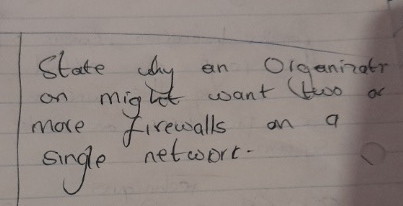 State why an Organizati
on might want (two or
more firewalls on a
single network.